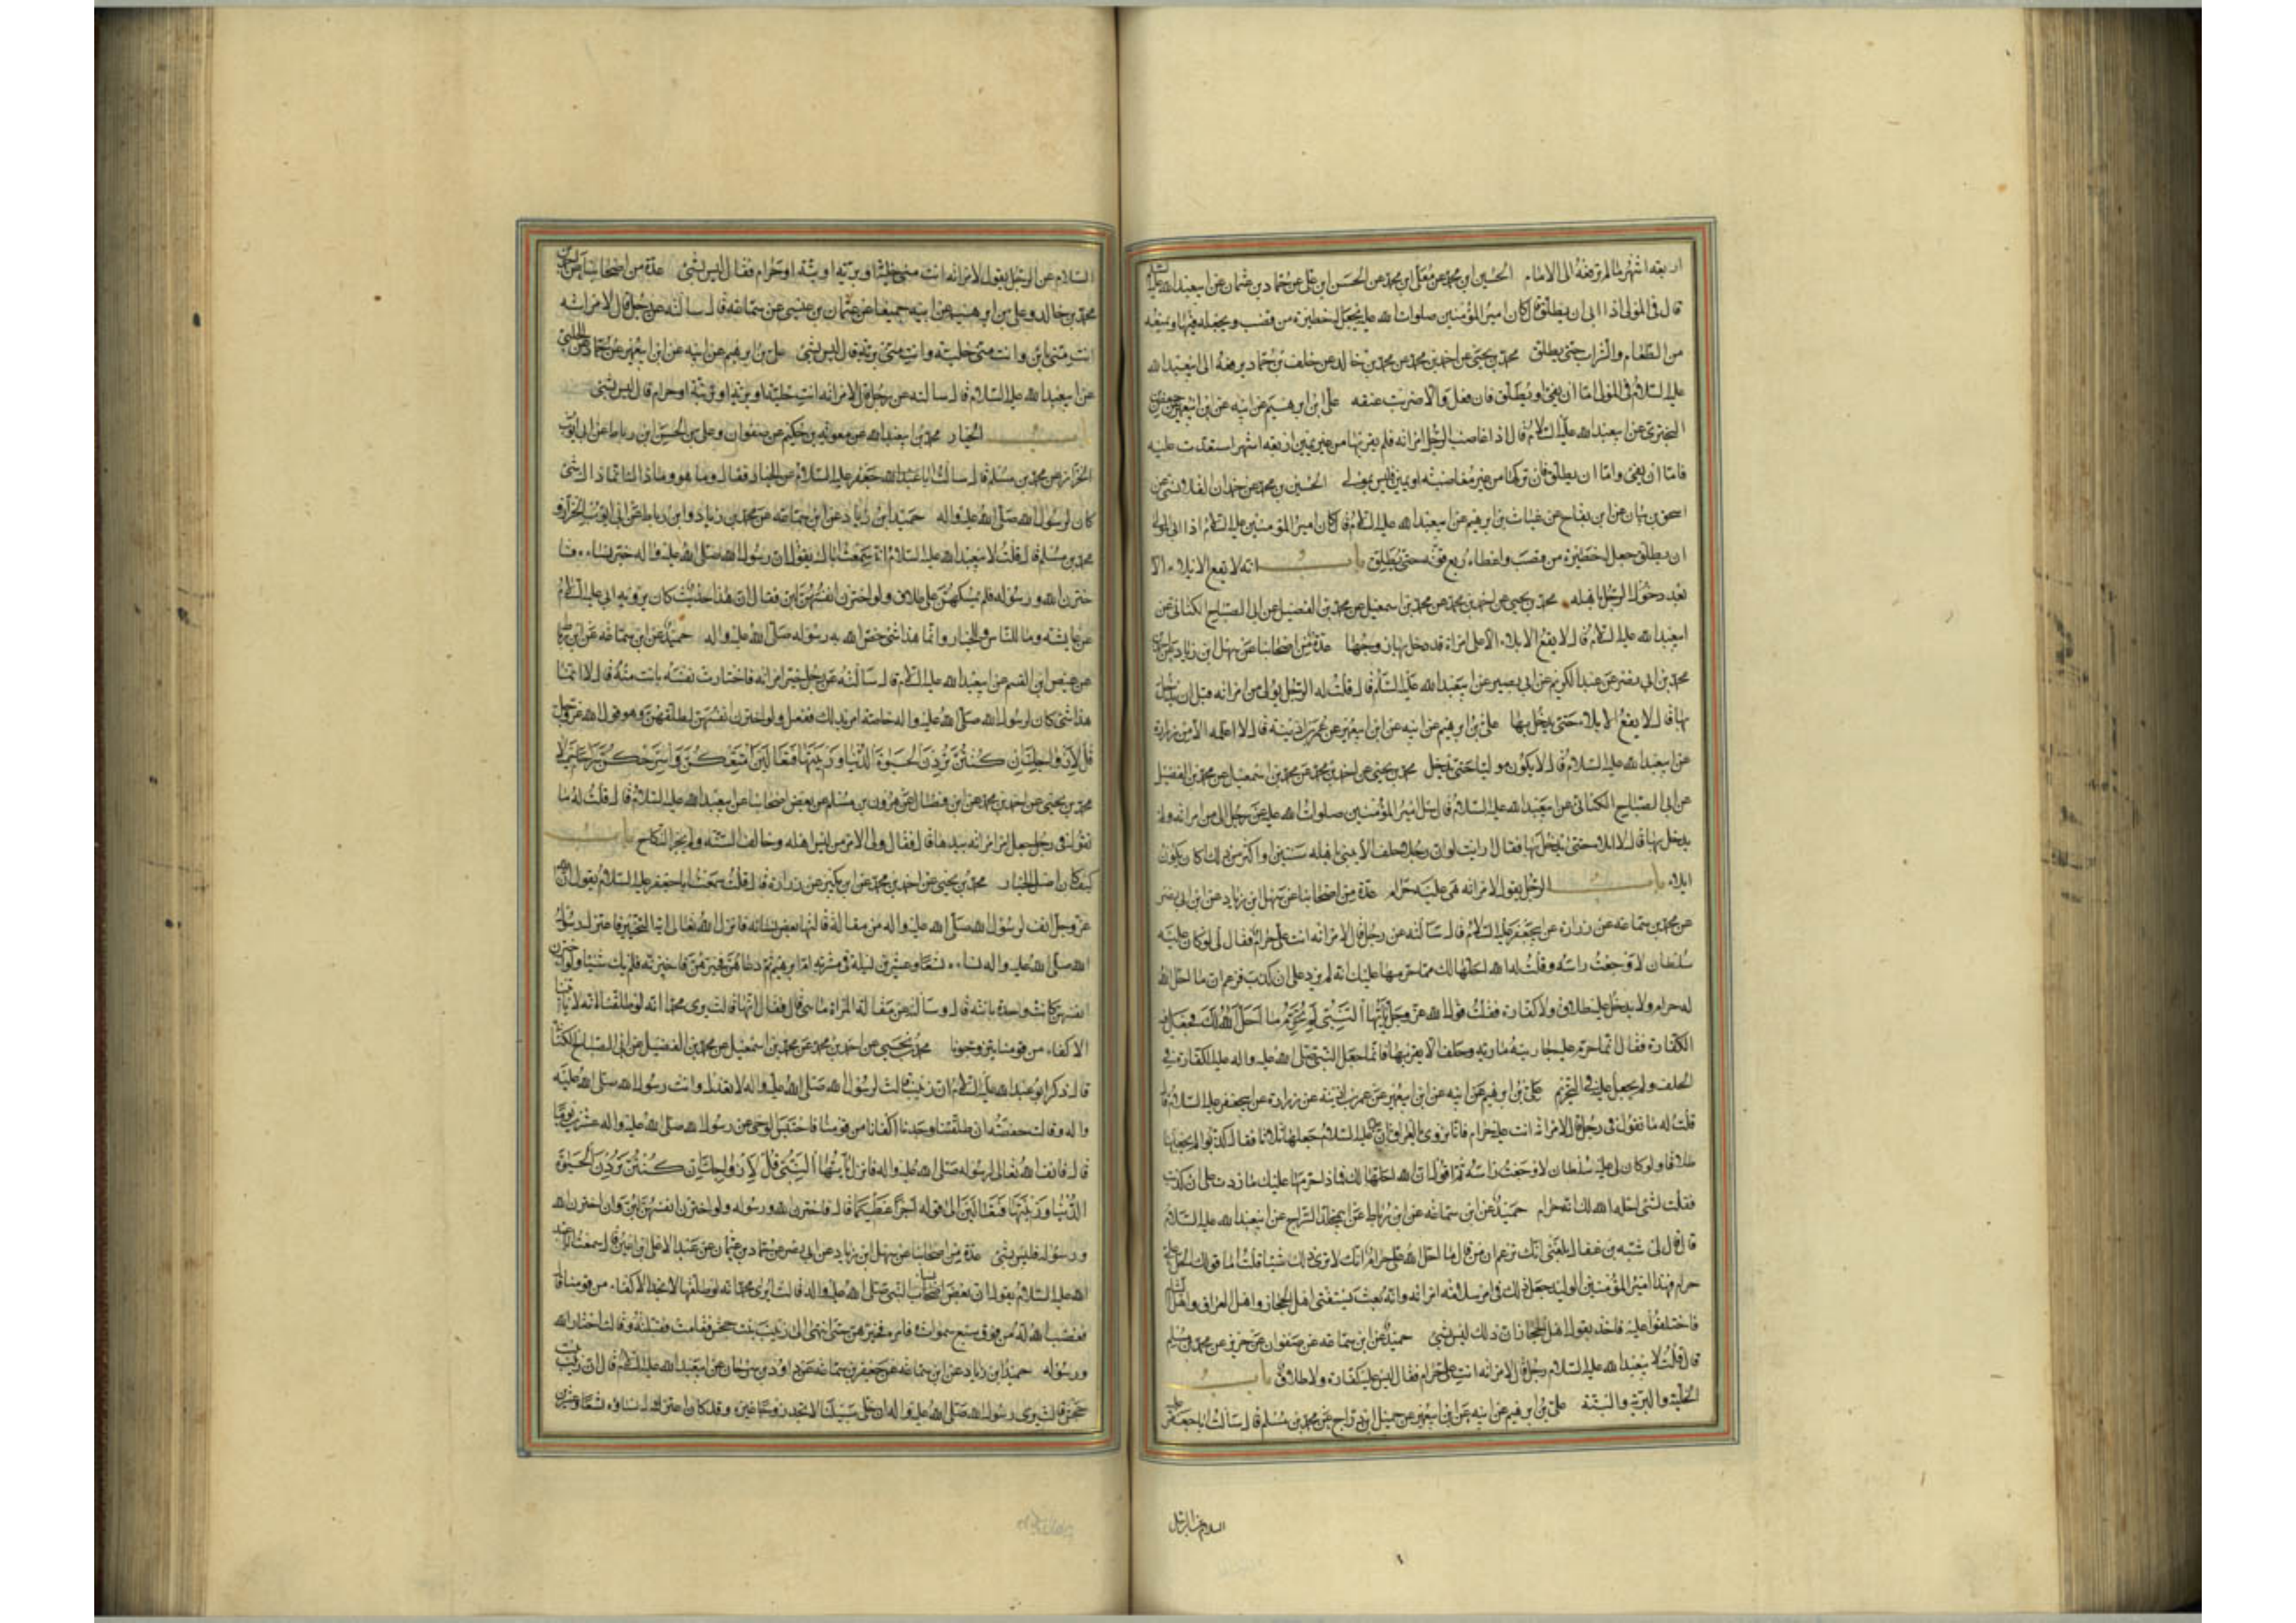 اربعة اشهر ما لم ترفعه الى الامام الحسين ابن محمد عن معلى ابن محمد عن الحسن ابن على عن حماد بن عثمان عن ابيعبدالله عليه السلام
قال فى المولى اذا ابى ان يطلق قال كان امير المؤمنين صلوات الله عليه يجعل له حظيرة من قصب و يجعله فيها و يمنعه
من الطعام والشراب حتى يطلق محمد بن يحيى عن احمد بن محمد عن محمد بن خالد عن خلف بن حماد يرفعه الى ابيعبدالله
عليه السلام فى المولى اما ان يفئ او يطلق فان فعل والا ضربت عنقه على ابن ابرهيم عن ابيه عن ابن ابيعمير عن حفص بن
البخترى عن ابيعبدالله عليه السلام قال اذا غاضب الرجل امراته فلم يقربها من غير يمين اربعة اشهر استعدت عليه
فاما ان يفئ واما ان يطلق فان تركها من غير مغاضبة او يمين فليس بمولى الحسين بن محمد عن حمدان القلانسى عن
اسحق بن بنان عن ابن بقاح عن غياث بن ابرهيم عن ابيعبدالله عليه السلام قال كان امير المؤمنين عليه السلام اذا ابى المولى
ان يطلق جعل له حظيرة من قصب واعطاه ربع قوته حتى يطلق باب انه لا يقع الايلاء الا
بعد دخول الرجل باهله محمد بن يحيى عن احمد بن محمد عن محمد بن اسمعيل عن محمد بن الفضيل عن ابى الصباح الكنانى عن
ابيعبدالله عليه السلام قال لا يقع الايلاء الا على امراة قد دخل بها زوجها عدة من اصحابنا عن سهل ابن زياد عن احمد بن
محمد بن ابى نصر عن عبد الكريم عن ابى بصير عن ابيعبدالله عليه السلام قال قلت له الرجل يولى من امراته قبل ان يدخل
بها قال لا يقع الايلاء حتى يدخل بها على بن ابرهيم عن ابيه عن ابن ابيعمير عن عمر بن اذينة قال لا اعلمه الا عن زرارة
عن ابيعبدالله عليه السلام قال لا يكون موليا حتى يدخل محمد بن يحيى عن احمد بن محمد عن محمد بن اسمعيل عن محمد بن الفضيل
عن ابى الصباح الكنانى عن ابيعبدالله عليه السلام قال سئل امير المؤمنين صلوات الله عليه عن رجل الى من امراته ولم
يدخل بها قال لا ايلاء حتى يدخل بها فقال ارايت لو ان رجلا حلف الا يبنى باهله سنتين او اكثر من ذلك اكان يكون
ايلاء باب الرجل يقول لامراته هى عليه حرام عدة من اصحابنا عن سهل ابن زياد عن ابن ابى نصر
عن محمد بن سماعة عن زرارة عن ابيجعفر عليه السلام قال سالته عن رجل قال لامراته انت على حرام فقال لى لو كان لى عليه
سلطان لاوجعت راسه وقلت له الله احلها لك فما حرمها عليك انه لم يزد على ان كذب فزعم ان ما احل الله
له حرام ولا يدخل عليه طلاق ولا كفارة فقلت قول الله عز وجل يا ايها النبى لم تحرم ما احل الله لك فجعل فيه
الكفارة فقال انما حرم عليه جاريته مارية وحلف الا يقربها فانما جعل النبى صلى الله عليه واله عليه الكفارة فى
الحلف ولم يجعل عليه فى التحريم على بن ابرهيم عن ابيه عن ابن ابيعمير عن عمر بن اذينة عن زرارة عن ابيجعفر عليه السلام قال
قلت له ما تقول فى رجل قال لامراته انت على حرام فانا نروى بالعراق ان عليا عليه السلام جعلها ثلاثا فقال كذبوا لم يجعلها
طلاقا ولو كان لى عليه سلطان لاوجعت راسه ثم اقول ان الله احلها لك فماذا حرمها عليك ما زدت على ان كذبت
فقلت لشئ احله الله لك انه حرام حميد عن ابن سماعة عن ابن رباط عن ابيمخلد السراج عن ابيعبدالله عليه السلام
قال قال لى شبة بن عقال بلغنى انك تزعم ان من قال ما احل الله على حرام انك لا ترى ذلك شيئا قلت اما قولك الحل على
حرام فهذا امير المؤمنين الوليد جعل ذلك فى امر سلامة امراته وانه بعث يستفتى اهل الحجاز واهل العراق واهل الشام
فاختلفوا عليه فاخذ بقول اهل الحجاز ان ذلك ليس بشئ حميد عن ابن سماعة عن صفوان عن حريز عن محمد بن مسلم
قال قلت لابيعبدالله عليه السلام رجل قال لامراته انت على حرام فقال ليس عليه كفارة ولا طلاق باب
الخلية والبرية والبتة على بن ابرهيم عن ابيه عن ابن ابيعمير عن جميل ابن دراج عن محمد بن مسلم قال سالت اباجعفر عليه
السلام عن الرجل
السلام عن الرجل يقول لامراته انت منى خلية او برية او بتة او حرام فقال ليس بشئ عدة من اصحابنا عن احمد بن
محمد بن خالد وعلى بن ابرهيم عن ابيه جميعا عن عثمان بن عيسى عن سماعة قال سالته عن رجل قال لامراته
انت منى باين وانت منى خلية وانت منى برية قال ليس بشئ على بن ابرهيم عن ابيه عن ابن ابيعمير عن حماد عن الحلبى
عن ابيعبدالله عليه السلام قال سالته عن رجل قال لامراته انت خلية او برية او بتة او حرام قال ليس بشئ
باب الخيار محمد بن ابيعبدالله عن معوية بن حكيم عن صفوان وعلى بن الحسن ابن رباط عن ابى ايوب
الخزاز عن محمد بن مسلم قال سالت ابا عبدالله جعفر عليه السلام عن الخيار فقال وما هو وما ذاك انما ذاك شئ
كان لرسول الله صلى الله عليه واله حميد ابن زياد عن ابن سماعة عن محمد بن زياد وابن رباط عن ابى ايوب الخزاز و
محمد بن مسلم قال قلت لابيعبدالله عليه السلام انى سمعت اباك يقول ان رسول الله صلى الله عليه واله خير نساءه فا
خترن الله ورسوله فلم يمسكهن على طلاق ولو اخترن انفسهن لبن فقال ان هذا حديث كان يرويه ابى عليه السلام
عن عايشة وما للناس والخيار وانما هذا شئ خص الله به رسوله صلى الله عليه واله حميد عن ابن سماعة عن ابن رباط
عن عيص ابن القسم عن ابيعبدالله عليه السلام قال سالته عن رجل خير امراته فاختارت نفسها بانت منه قال لا انما
هذا شئ كان لرسول الله صلى الله عليه واله خاصة امر بذلك ففعل ولو اخترن انفسهن لطلقهن وهو قول الله عز وجل
قل لازواجك ان كنتن تردن الحيوة الدنيا وزينتها فتعالين امتعكن واسرحكن سراحا جميلا
محمد بن يحيى عن احمد بن محمد عن ابن فضال عن هرون بن مسلم عن بعض اصحابنا عن ابيعبدالله عليه السلام قال قلت له ما
تقول فى رجل جعل امر امراته بيدها قال فقال ولى الامر من ليس اهله وخالف السنة ولم يجز النكاح باب
كيف كان اصل الخيار محمد بن يحيى عن احمد بن محمد عن ابن بكير عن زرارة قال قلت سمعت اباجعفر عليه السلام يقول ان الله
عز وجل انف لرسول الله صلى الله عليه واله من مقالة قالتها بعض نسائه فانزل الله تعالى اية التخيير فاعتزل رسول
الله صلى الله عليه واله نساءه تسعا وعشرين ليلة فى مشربة ام ابرهيم ثم دعاهن فخيرهن فاخترنه فلم يك شيئا ولو اخترن
انفسهن كانت واحدة باينة قال وسالته عن مقالة المراة ما هى قال فقال انها قالت يرى محمد انه لو طلقنا انه لا ياتينا
الاكفاء من قومنا يتزوجونا محمد بن يحيى عن احمد بن محمد عن محمد بن اسمعيل عن محمد بن الفضيل عن ابى الصباح الكنانى
قال ذكر ابو عبدالله عليه السلام ان زينب قالت لرسول الله صلى الله عليه واله لا تعدل وانت رسول الله صلى الله عليه
واله وقالت حفصة ان طلقتنا وجدنا اكفانا من قومنا فاحتبس الوحى عن رسول الله صلى الله عليه واله عشرين يوما
قال فانف الله تعالى لرسوله صلى الله عليه واله فانزل يا ايها النبى قل لازواجك ان كنتن تردن الحيوة
الدنيا وزينتها فتعالين الى قوله اجرا عظيما قال فاخترن الله ورسوله ولو اخترن انفسهن لبن وان اخترن الله
ورسوله فليس بشئ عدة من اصحابنا عن سهل ابن زياد عن ابى نصر عن حماد بن عثمان عن عبد الاعلى ابن اعين قال سمعت ابا عبد
الله عليه السلام يقول ان بعض نساء النبى صلى الله عليه واله قالت ايرى محمد انه لو طلقنا لا نجد الاكفاء من قومنا قال
فغضب الله له من فوق سبع سموات فامره فخيرهن حتى انتهى الى زينب بنت جحش فقامت فقبلته وقالت اختار الله
ورسوله حميد ابن زياد عن ابن سماعة عن جعفر بن سماعة عن داود بن سرحان عن ابيعبدالله عليه السلام قال ان زينب بنت
جحش قالت يرى رسول الله صلى الله عليه واله ان خلى سبيلنا لا نجد زوجا غيره وقد كان اعتزل نساءه تسعا وعشرين